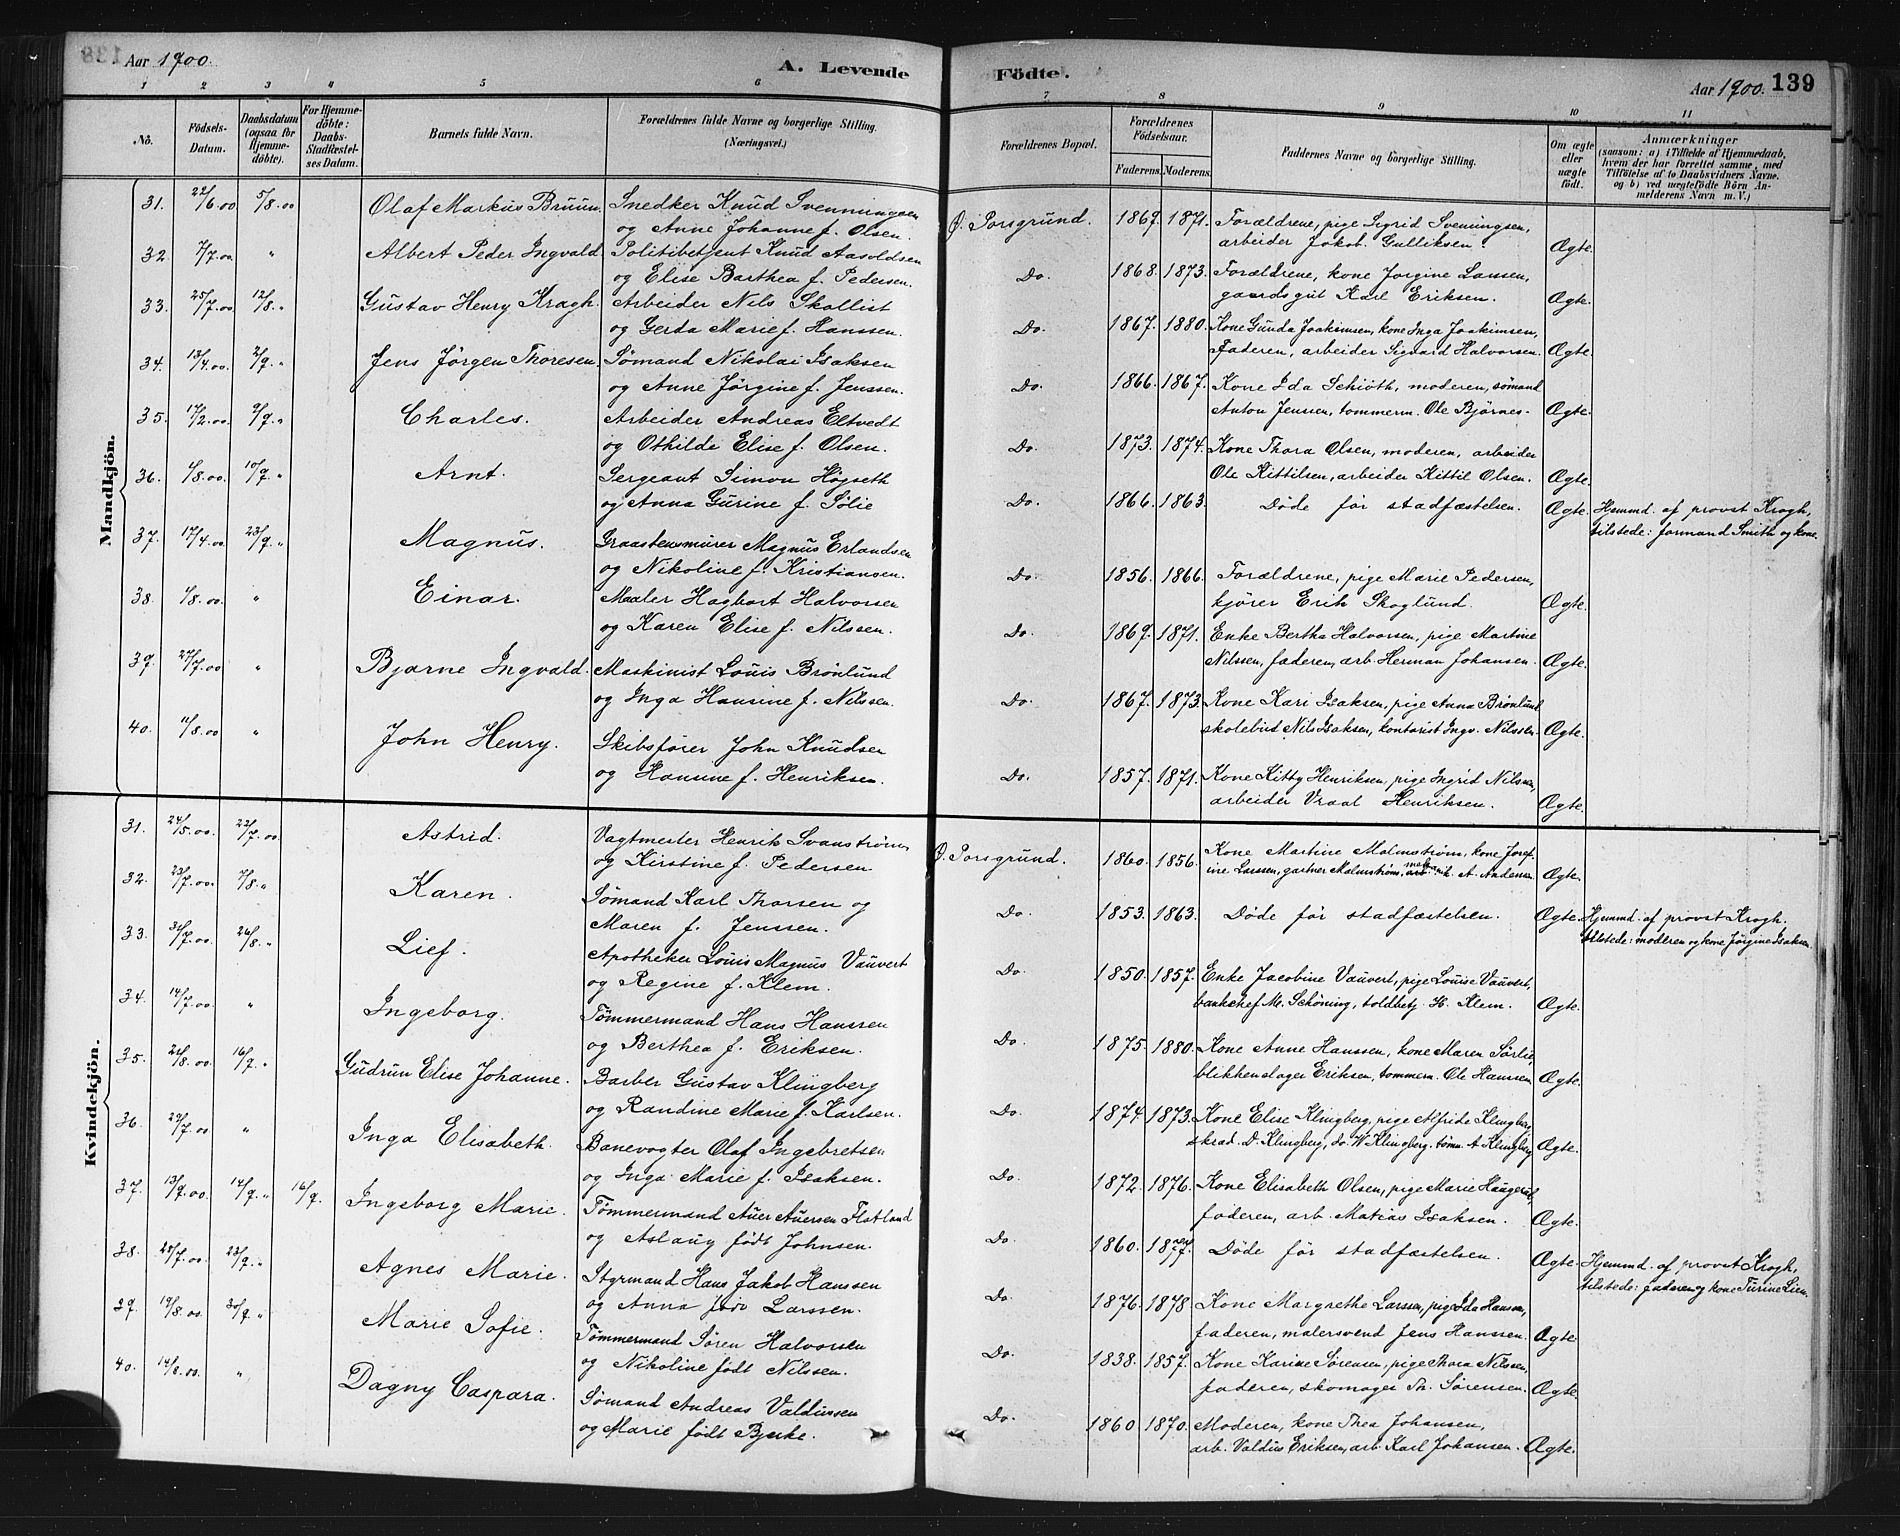 Aar 1900.
A. Levende
1 2 3 4 5 6
No.
Födsels-
Datum.
Daabsdatum
(ogsaa for
Hjemme-
döbte).
For Hjemme-
döbte:
Daabs-
Stadfæstel-
ses Datum.
Barnets fulde Navn.
Forældrenes fulde Navne og borgerlige Stilling.
(Næringsvei.)
Mandkjön.
31. 22/6.00 5/8.00 Olaf Markus Bruun. Snedker Knud Svenningsen
og Anne Johanne f. Olsen.
32. 7/7.00 " Albert Peder Ingvald Politibetjent Knud Aasoldsen
og Elise Barthea f. Pedersen.
33. 25/7.00 12/8. " Gustav Henry Kragh. Arbeider Nils Skollist
og Gerda Marie f. Hanssen.
34. 13/4.00 2/9. " Jens Jörgen Thoresen. Sömand Nikolai Isaksen
og Anne Jörgine f. Jenssen.
35. 17/2.00. 9/9. " Charles. Arbeider Andreas Eltvedt
og Othilde Elise f. Olsen.
36. 1/8.00. 10/9. " Arnt. Sergeant Simon Högseth
og Anna Gurine f. Sölie
37. 17/4.00. 23/9. " Magnus. Graastensmurer Magnus Erlandsen
og Nikoline f. Kristiansen.
38. 1/8.00. " Einar. Maaler Hagbart Halvorsen
og Karen Elise f. Nilssen.
39. 27/7.00 " Bjarne Ingvald. Maskinist Louis Brönlund
og Inga Hansine f. Nilssen.
40. 11/8.00 " John Henry. Skibsförer John Knudsen
og Hansine f. Henriksen.
Kvindekjön.
31. 24/5.00. 22/7.00. Astrid. Vagtmester Henrik Svanström
og Kirstine f. Pedersen
32. 23/7.00. 7/8. " Karen. Sömand Karl Thorsen og
Maren f. Jenssen.
33. 31/7.00. 26/8. " Lief. Apotheker Louis Magnus Vauvert
og Regine f. Klem.
34. 14/7.00. " Ingeborg. Tömmermand Hans Hanssen
og Berthea f. Eriksen.
35. 21/8.00. 16/9. " Gudrun Elise Johanne. Barber Gustav Klingberg
og Randine Marie f. Karlsen.
36. 29/7.00 " Inga Elisabeth. Banevogter Olaf Ingebretsen
og Inga Marie f. Isaksen.
37. 13/9.00. 14/9. " 16/9. Ingeborg Marie. Tömmermand Auer Auersen Flatland
og Aslaug född Johnsen.
38. 28/7.00. 23/9. " Agnes Marie. Styrmand Hans Jakob Hanssen
og Anna född Larssen.
39. 19/8.00. 30/9. " Marie Sofie. Tömmermand Sören Halvorsen
og Nikoline födt Nilssen.
40. 14/8.00. " Dagny Caspara. Sömand Andreas Valdiussen
og Marie födt Bjerke.
Födte.
Aar 1900. 139
7 8 9 10 11
Forældrenes Bopæl.
Forældrenes
Födselsaar.
Faderens. Moderens.
Faddernes Navne og borgerlige Stilling.
Om ægte
eller
uægte
födt.
Anmærkninger
(saasom: a) i Tilfælde af Hjemmedaab,
hvem der har forrettet samme, med
Tilföielse af to Daabsvidners Navne.
og b) ved uægtefödte Börn An-
melderens Navn m. V.)
Ö. Porsgrund. 1869. 1871. Forældrene, pige Sigrid Svenningsen,
arbeider Jakob Gulliksen. Ægte.
Do. 1868. 1873. Forældrene, kone Jorgine Larssen,
gaardsgut Karl Eriksen. Ægte.
Do. 1867. 1880. Kone Gunda Joakimsen, kone Inga Joakimsen,
Faderen, arbeider Sigvard Halvorsen. Ægte.
Do. 1866. 1867. Kone Ida Schiöth, moderen, sömand
Anton Jenssen, tommerm. Ole Björnes- Ægte.
Do. 1873. 1874. Kone Thora Olsen, moderen, arbeider
Ole Kittilsen, arbeider Kittil Olsen. Ægte.
Do. 1866. 1863. Döde för stadfæstelsen. Ægte. Hjemmd. af provst Krogh,
tilstede: formand Smith og kone.
Do. 1856. 1866. Forældrene, pige Marie Pedersen,
kjörer Erik Skoglund. Ægte.
Do. 1869. 1871. Enke Bertha Halvorsen, pige Martine
Nilssen, faderen, arb. Herman Johansen. Ægte.
Do. 1867. 1873. Kone Kari Isaksen, pige Anna Brönlund
skolebud Nils Isaksen, kontorist Ingv. Nilssen. Ægte.
Do. 1857. 1871. Kone Kitty Henriksen, pige Ingrid Nilssen,
arbeider Vraal Henriksen. Ægte.
Ö. Porsgrund. 1860. 1856. Kone Martine Malmström, kone Josef-
ine Larssen, gartner Malmström, A. Andersen. Ægte.
Do. 1853. 1863. Döde för stadfæstelsen. Ægte. Hjemmd. af provst Krogh.
tilstede: moderen og kone Jörgine Isaksen.
Do. 1850. 1857. Enke Jacobine Vauvert, pige Louise Vauvert,
bankchef M. Schöning, toldbetj. H. Klem. Ægte.
Do. 1875. 1880. Kone Anne Hanssen, kone Maren Sörlie,
blikkenslager Eriksen, tommerm. Ole Hanssen. Ægte.
Do. 1874. 1873. Kone Elise Klingberg, pige Alfride Klingberg
skræd. D. Klingberg, do. W Klingberg. tömm. A Klingberg Ægte.
Do. 1872. 1876. Kone Elisabeth Olsen, pige Marie Haugerud,
faderen, arb. Matias Isaksen. Ægte.
Do. 1860. 1877. Döde för stadfæstelsen. Ægte. Hjemmd. af provst Krogh,
tilstede: faderen og kone Turine Lien.
Do. 1876. 1878. Kone Margrethe Larssen, pige Ida Hanssen,
faderen, malersvend Jens Hanssen. Ægte
Do. 1838. 1857. Kone Karine Sörensen, pige Thora Nilssen,
faderen, skomager Th. Sörensen. Ægte.
Do. 1860 1870. Moderen, kone Thea Johansen,
arb. Valdius Eriksen, arb. Karl Johansen. Ægte.